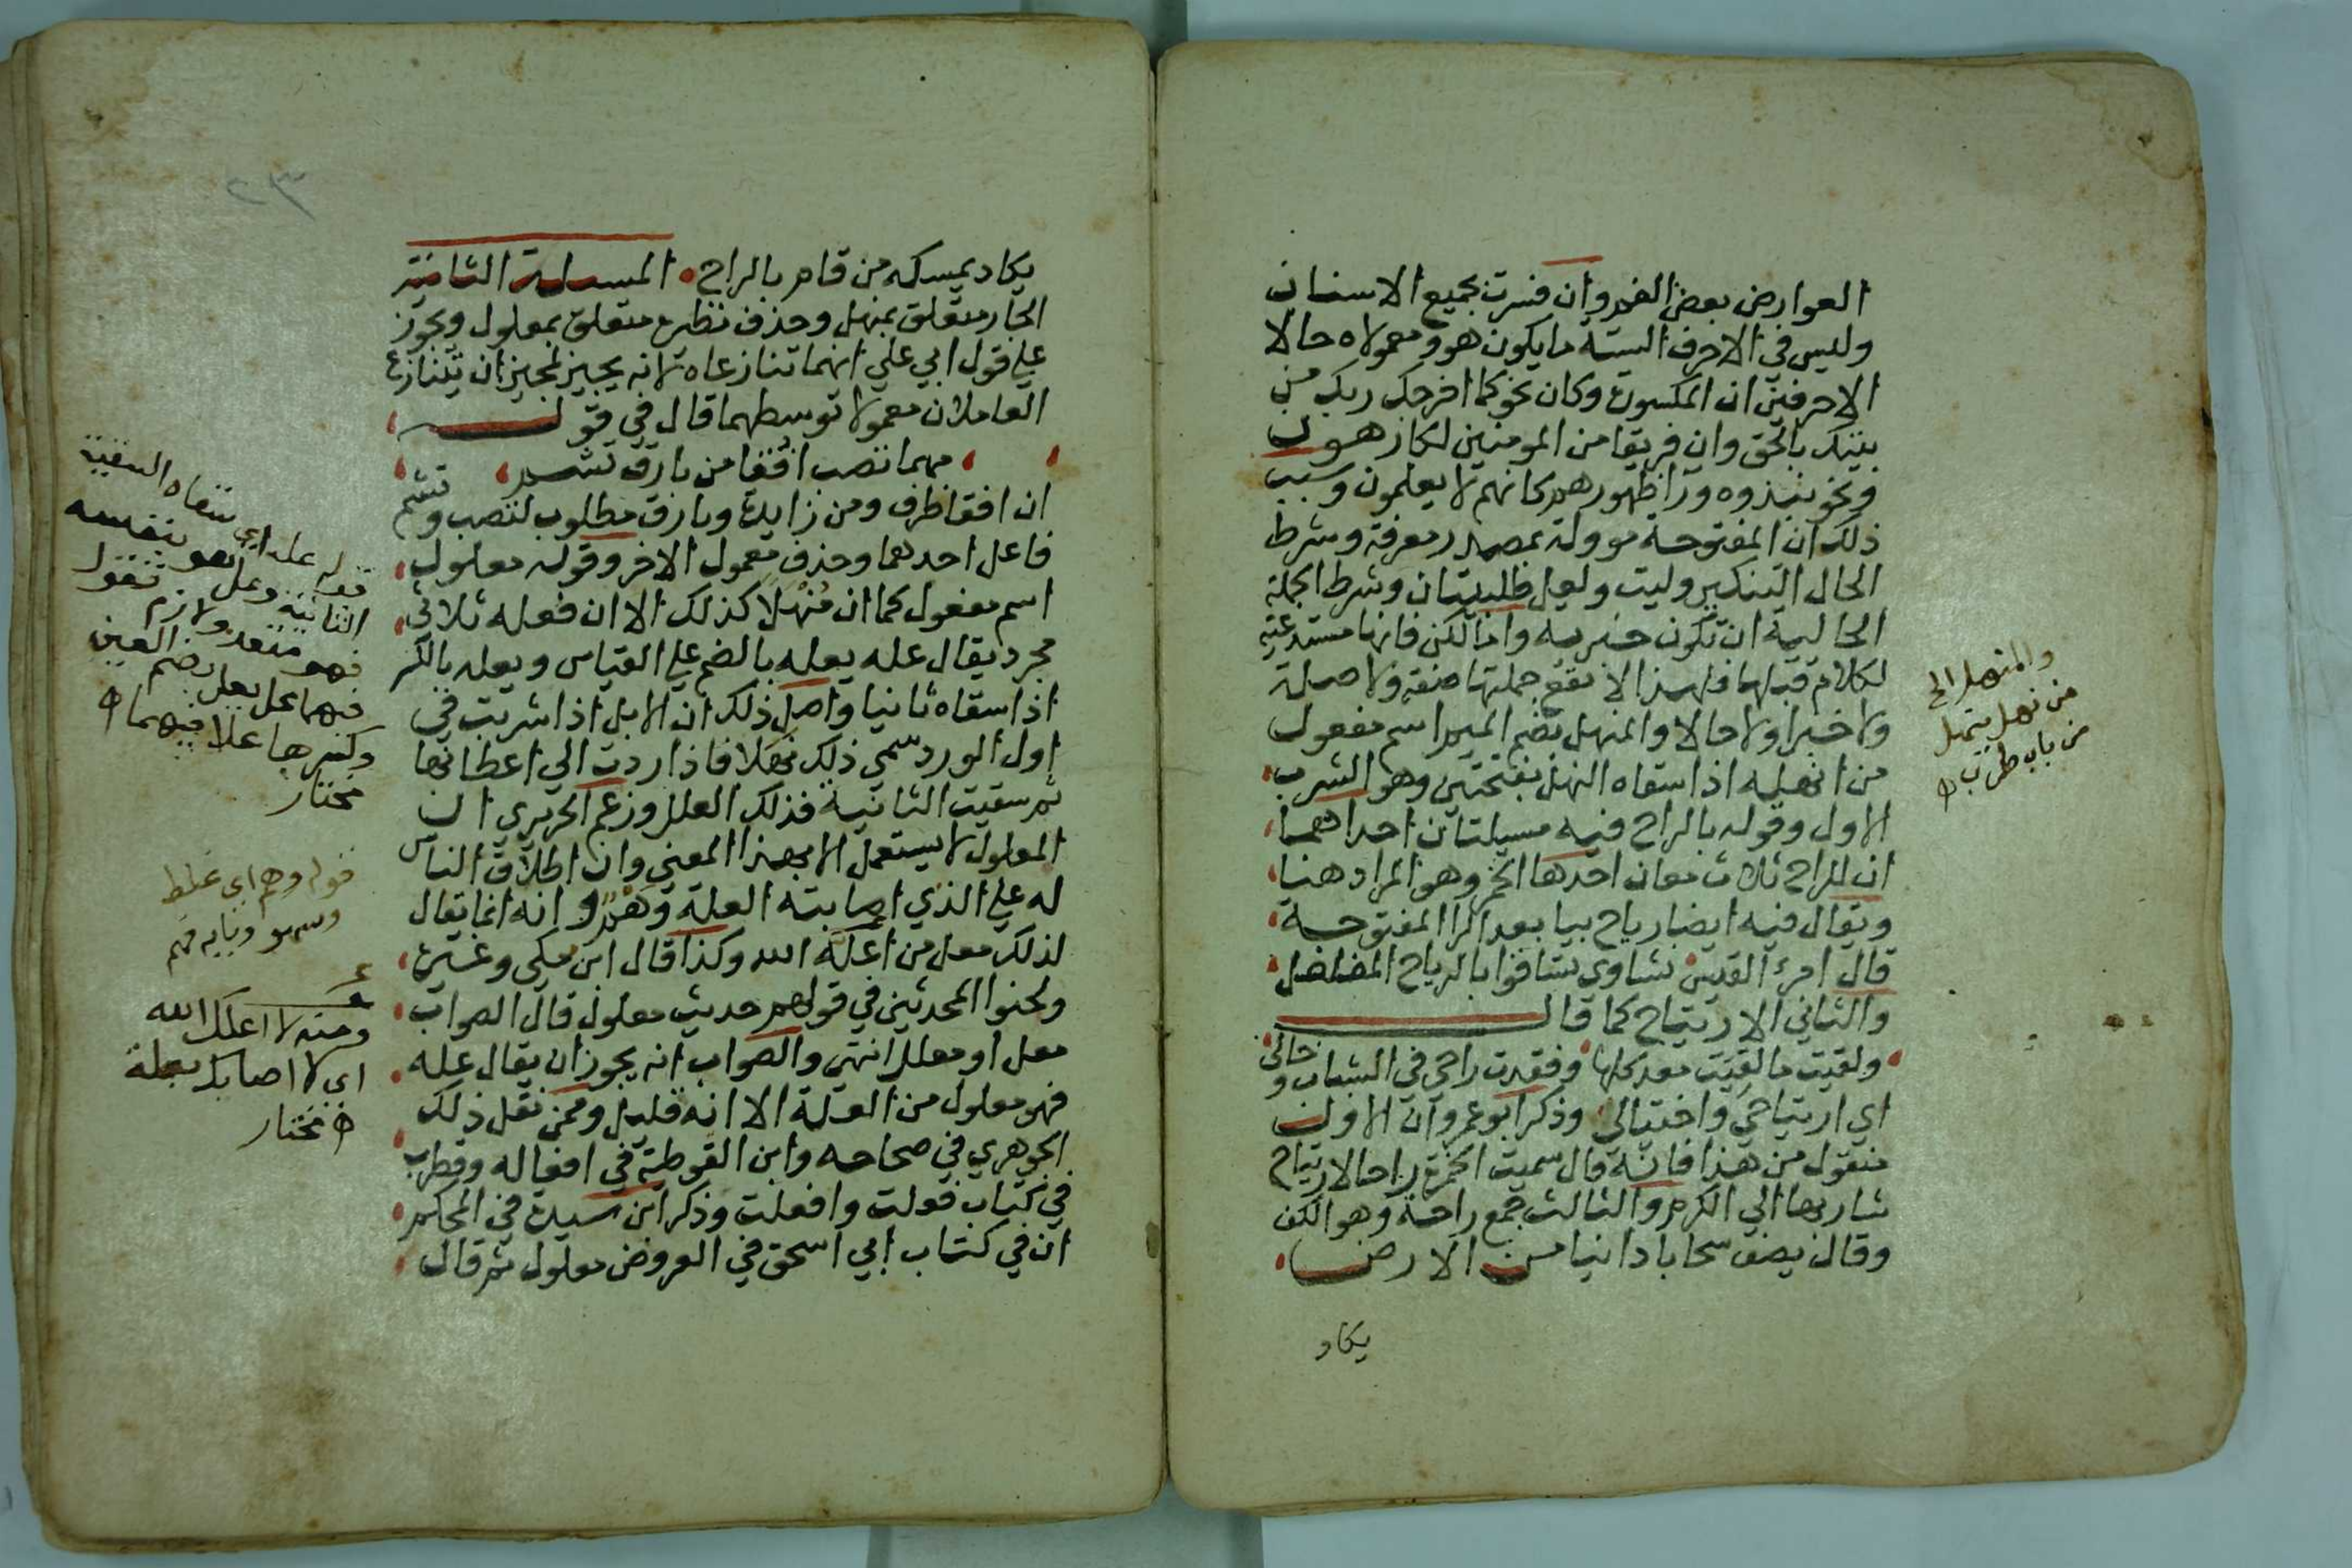 العوارض بعض الفم وان فسرت بجميع الاسنان
وليس في الاحرف الستة ما يكون هو ومعمولاه حالا
الاحرفين ان المكسورة وكان نحو كما اخرجك ربك من
بيتك بالحق وان فريقا من المومنين لكارهون
ونحو نبذوه ورا ظهورهم كانهم لا يعلمون وسبب
ذلك ان المفتوحة موولة بمصدر معرفة وشرط
الحال التنكير وليت ولعل طلبيتان وشرط الجملة
الحالية ان تكون خبرية واما لكن فانها مستدعية
لكلام قبلها فلهذا لا تقع جملتها صفة ولا صلة
ولا خبرا ولا حالا والمنهل بضم الميم اسم مفعول
من انهله اذا سقاه النهل بفتحتين وهو الشرب
الاول وقوله بالراح فيه مسيلتان احداهما
ان للراح ثلاث معان احدها الخمر وهو المراد هنا
ويقال فيه ايضا رياح بيا بعد الرا المفتوحة
قال امرئ القيس نشاوى تساقوا بالرياح المفلفل
والثاني الارتياح كما قال
ولقيت ما لقيت معد كلها وفقدت راحي في الشباب وخالى
اي ارتياحي واختيالي وذكر ابو عمرو ان الاول
منقول من هذا فانه قال سميت الخمرة راحا لارتياح
شاربها الى الكرم والثالث جمع راحة وهو الكف
وقال يصف سحابا دانيا من الارض
يكاد
والمنهل الخ
من نهل ينهل
من باب طرب اه
٢٣
يكاد يمسكه من قام بالراح المسيلة الثانية
الجار متعلق بمنهل وحذف نظيره متعلق بمعلول ويجوز
على قول ابي علي انهما تنازعاه لانه يجيز ان يتنازع
العاملان معمولا توسطهما قال في قول
مهما تصب افقا من بارق تشم
ان افقا ظرف ومن زايدة وبارق مطلوب لتصب وتشم
فاعل احدهما وحذف معمول الاخر وقوله معلول
اسم مفعول كما ان منهلا كذلك الا ان فعله ثلاثي
مجرد يقال عله يعله بالضم على القياس ويعله بالكسر
اذا سقاه ثانيا واصل ذلك ان الابل اذا شربت في
اول الورد سمي ذلك نهلا فاذا ردت الى اعطانها
ثم سقيت الثانية فذلك العلل وزعم الحريري ان
المعلول لا يستعمل الا بهذا المعنى وان اطلاق الناس
له على الذي اصابته العلة وهم وانه انما يقال
لذلك معل من اعله الله وكذا قال ابن مكي وغيره
ولحنوا المحدثين في قولهم حديث معلول قال الصواب
معل او معلل انتهى والصواب انه يجوز ان يقال عله
فهو معلول من العلة الا انه قليل وممن نقل ذلك
الجوهري في صحاحه وابن القوطية في افعاله وقطرب
في كتاب فعلت وافعلت وذكر ابن سيده في المحكم
ان في كتاب ابي اسحق في العروض معلول ثم قال
قوله عله اي سقاه السقية
الثانية وعل هو بنفسه
فهو متعد ولازم تقول
فيهما عل يعل بضم العين
وكسرها عللا فيهما اه
مختار
قوله وهم اي غلط
وسهو وبابه فهم
ومنه لا اعلك الله
اي لا اصابك بعلة
اه مختار